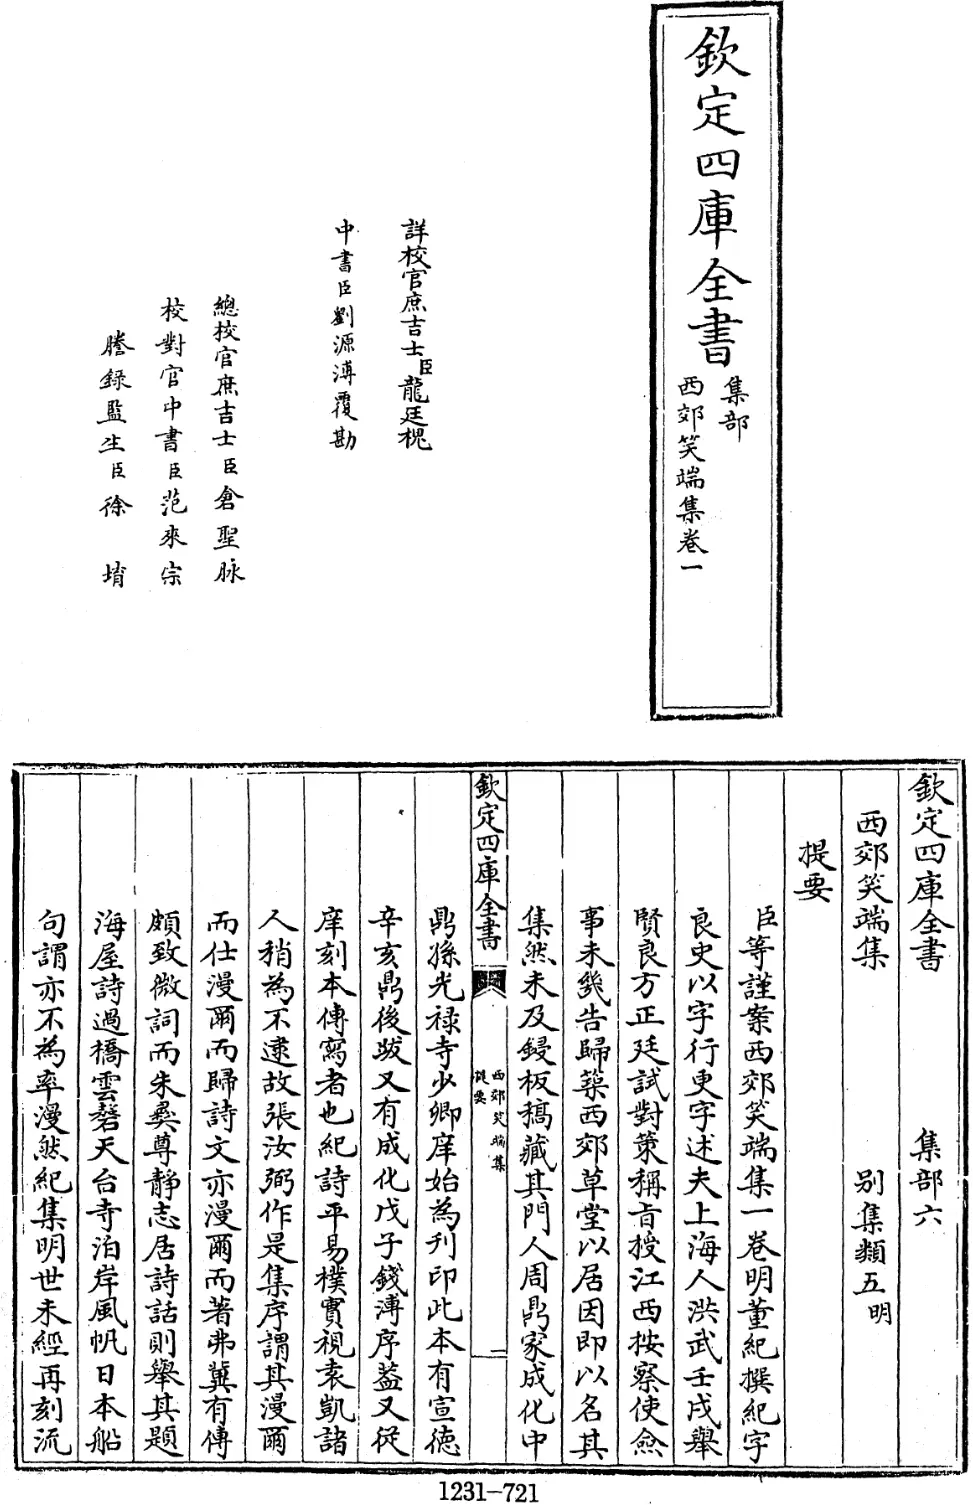 欽定四庫全書
集部
西郊笑端集卷一
詳校官庶吉士臣龍廷槐
中書臣劉源溥覆勘
總校官庶吉士臣倉聖脉
校對官中書臣范來宗
謄錄監生臣徐堉
欽定四庫全書 集部六
西郊笑端集 别集類五明
提要
臣等謹案西郊笑端集一巻明董紀撰紀字
良史以字行更字述夫上海人洪武壬戌舉
賢良方正廷試對策稱旨授江西按察使僉
事未幾告歸築西郊草堂以居因即以名其
集然未及鋟板稿藏其門人周鼎家成化中
欽定四庫全書
西郊笑端集
提要
一
鼎孫光禄寺少卿庠始為刋印此本有宣德
辛亥鼎後跋又有成化戊子錢溥序葢又從
庠刻本傳寫者也紀詩平易樸實視袁凱諸
人稍為不逮故張汝弼作是集序謂其漫爾
而仕漫爾而歸詩文亦漫爾而著弗冀有傳
頗致微詞而朱彞尊靜志居詩話則舉其題
海屋詩過橋雲磬天台寺泊岸風帆日本船
句謂亦不為率漫然紀集明世未經再刻流
1231-721